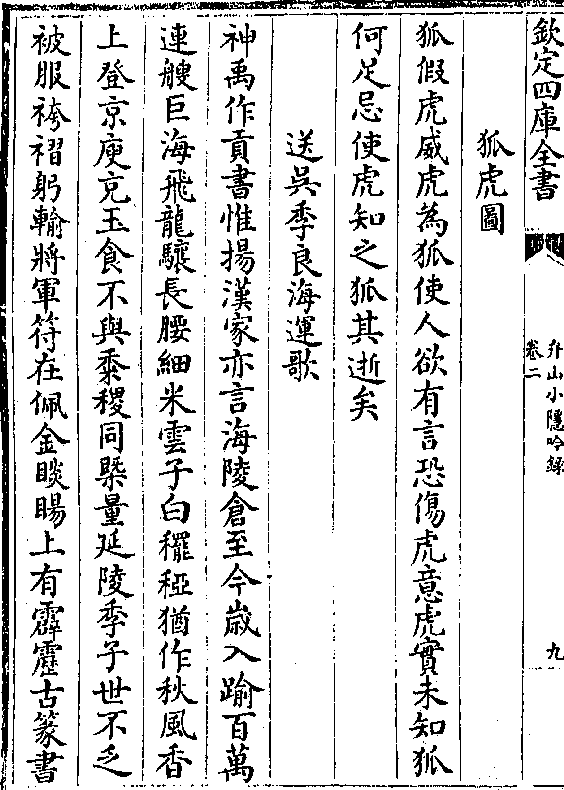 欽定四庫全書
弁山小隱吟錄
卷二
九
狐虎圖
狐假虎威虎為狐使人欲有言恐傷虎意虎實未知狐
何足忌使虎知之狐其逝矣
送吳季良海運歌
神禹作貢書惟揚漢家亦言海陵倉至今歲入踰百萬
連艘巨海飛龍驤長腰細米雲子白䆉稏猶作秋風香
上登京庾充玉食不與黍稷同槩量延陵季子世不乏
被服袴褶躬輸將軍符在佩金睒暘上有霹靂古篆書